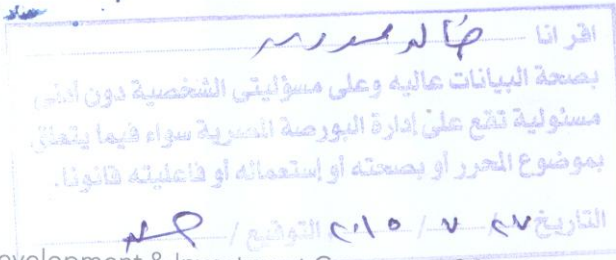 اقر انا خالد
بصحة البيانات عاليه وعلى مسؤليتى الشخصية دون أدنى
مسئولية تقع على إدارة البورصة المصرية سواء فيما يتعلق
بموضوع المحرر او بصحته أو إستعماله أو فاعليته قانونا.
التاريخ ٢٧ / ٧ / ٢٠١٥ التوقيع /
evelopment & Investment